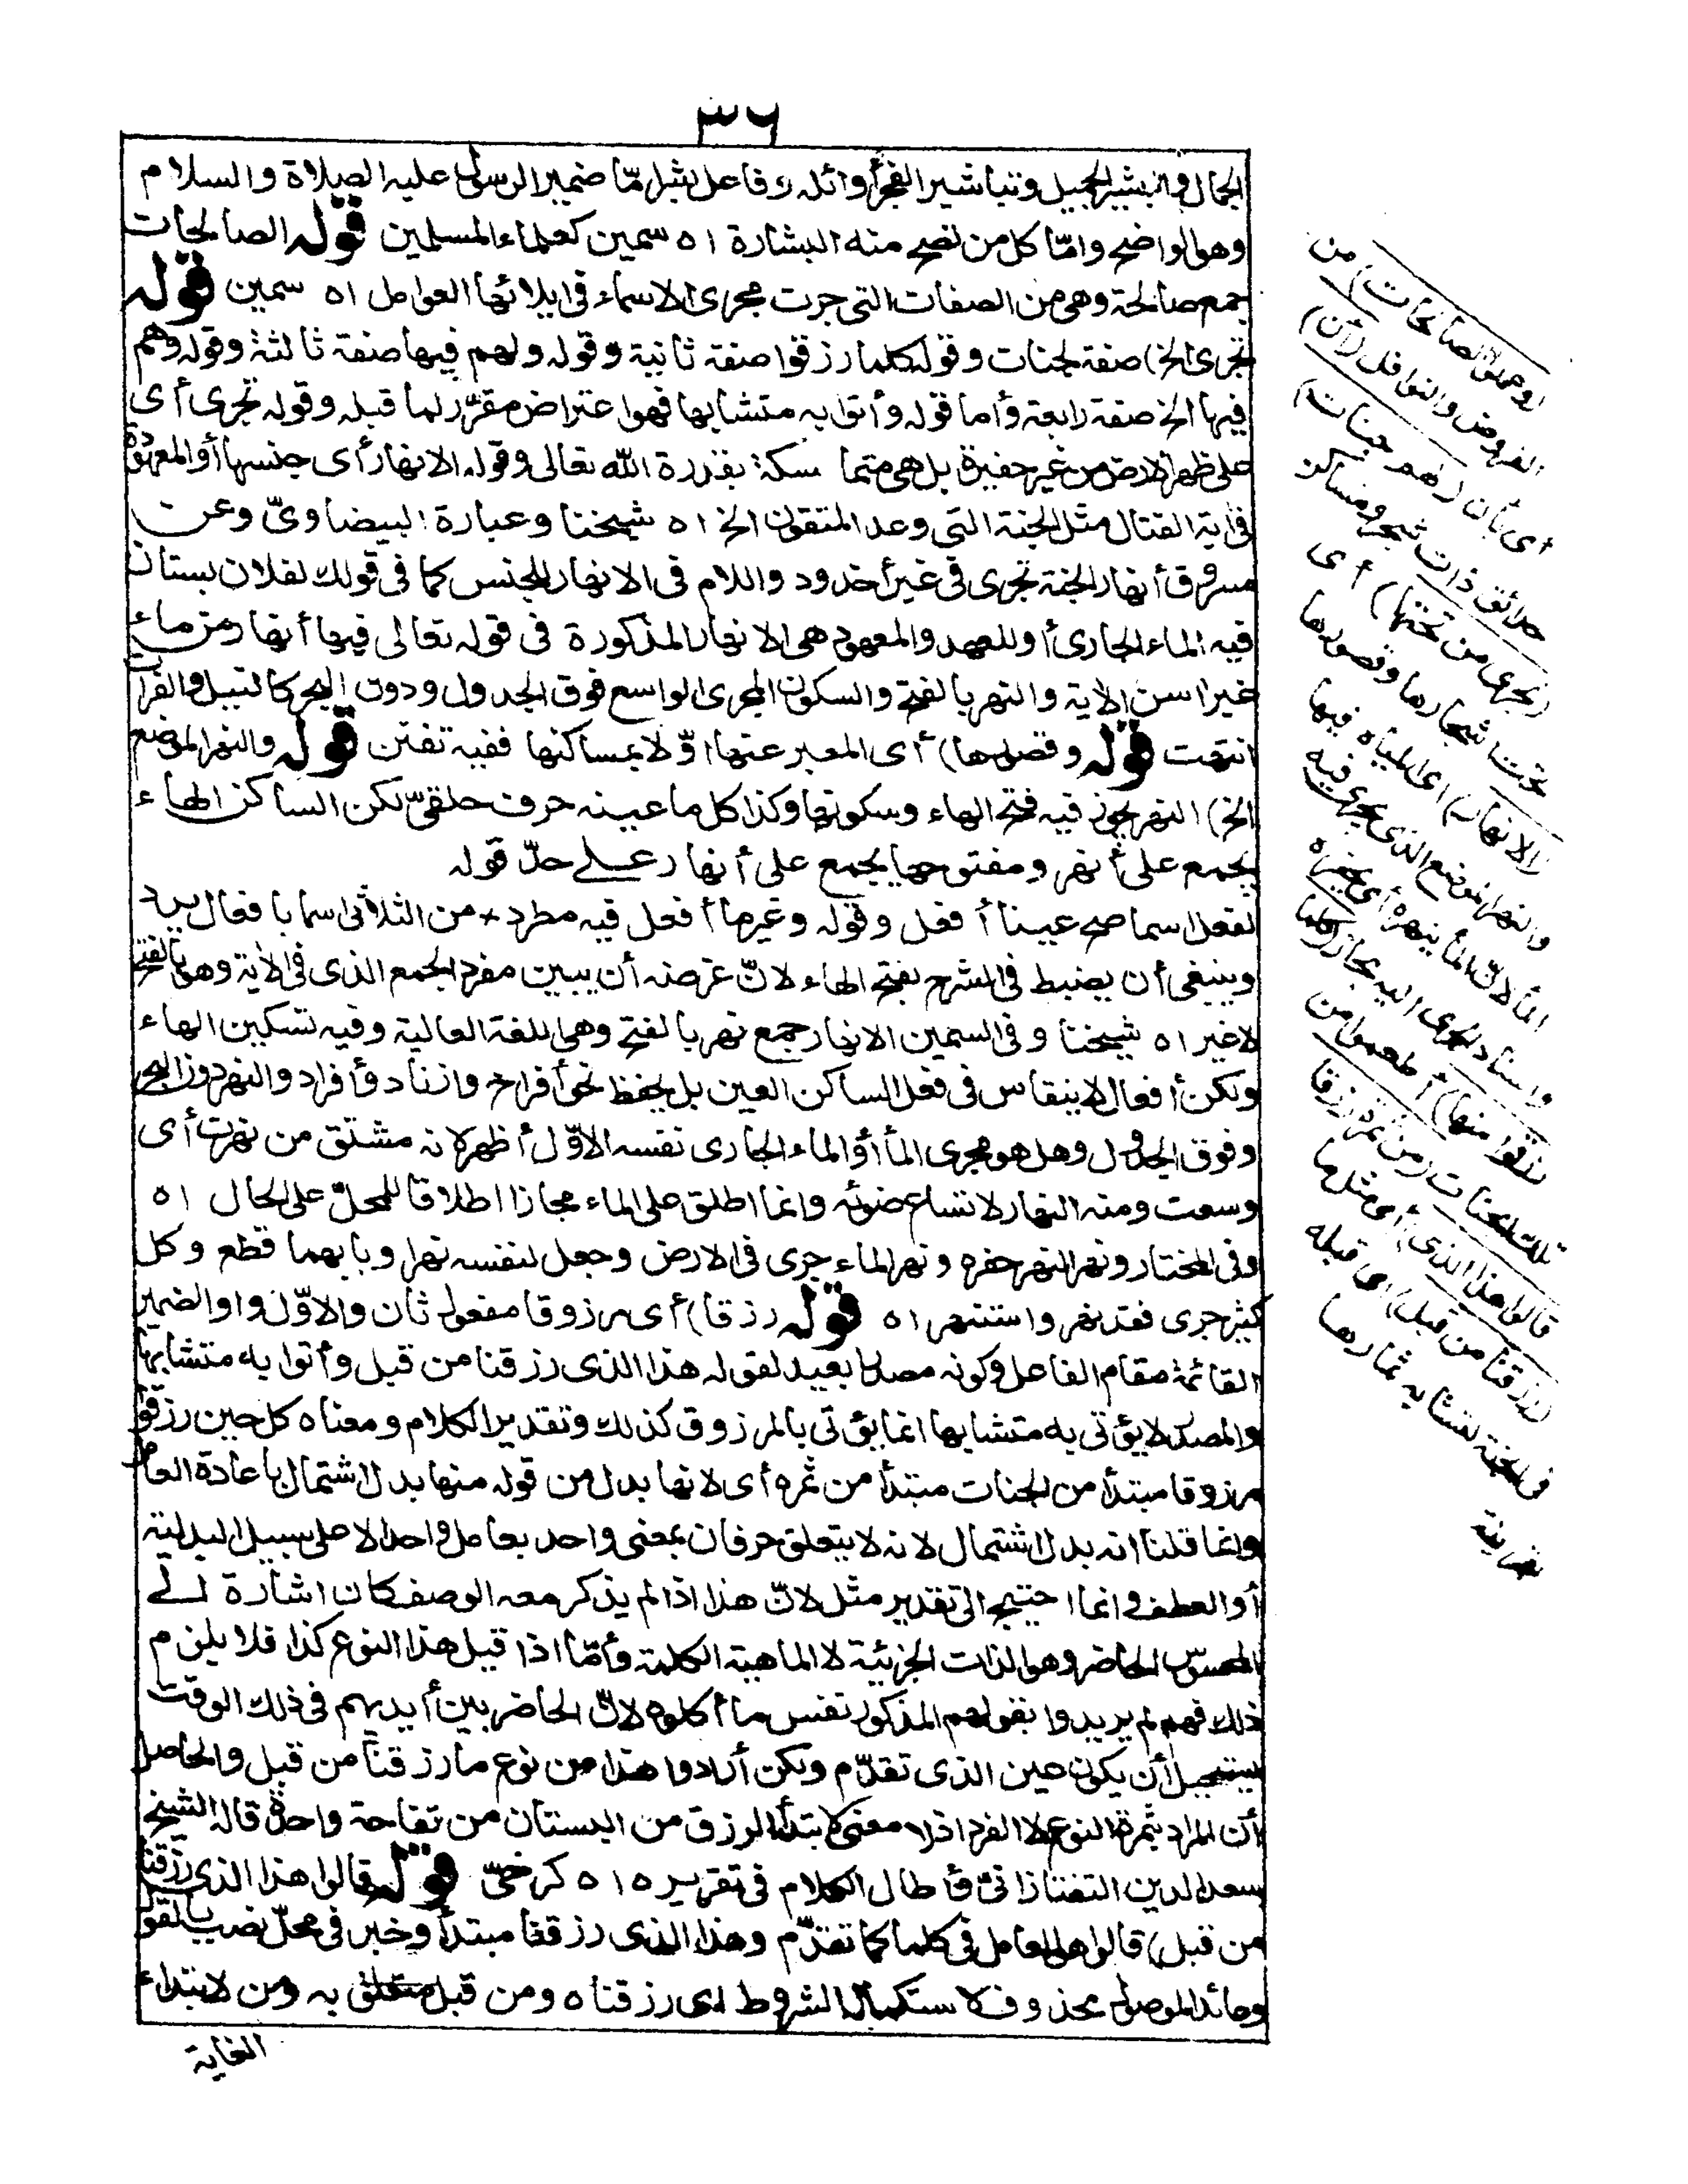 ٣٦
الجمال والبشير الجميل وتباشير الفجر أوائله وفاعل بشر امّا ضمير الرسول عليه الصلاة والسلام
وهو الواضح وامّا كل من تصح منه البشارة اه سمين كعلماء المسلمين قوله الصالحات
جمع صالحة وهي من الصفات التى جرت مجرى الاسماء فى ايلائها العوامل اه سمين قوله
تجرى الخ) صفة لجنات وقوله كلما رزقوا صفة ثانية وقوله ولهم فيها صفة ثالثة وقوله وهم
فيها الخ صفة رابعة وأما قوله وأتوا به متشابها فهو اعتراض مقرّر لما قبله وقوله تجرى أى
على ظهر الارض من غير حفيرة بل هى متماسكة بقدرة الله تعالى وقوله الانهار أى جنسها أو المعهودة
فى آية القتال مثل الجنة التى وعد المتقون الخ اه شيخنا وعبارة البيضاوىّ وعن
مسروق أنهار الجنة تجرى فى غير أخدود واللام فى الانهار للجنس كما فى قولك لفلان بستان
فيه الماء الجارى أو للعهد والمعهود هى الانهار المذكورة فى قوله تعالى فيها أنهار من ماء
غير اسن الآية والنهر بالفتح والسكون المجرى الواسع فوق الجدول ودون البحر كالنيل والفرات
انتهت قوله وقصورها) أى المعبر عنها اوّلا بمساكنها ففيه تفنن قوله والنهر الموضع
الخ) النهر يجوز فيه فتح الهاء وسكونها وكذا كل ما عينه حرف حلقىّ لكن الساكن الهاء
يجمع على أنهر ومفتوحها يجمع على أنهار على حدّ قوله
لفعل اسما صح عينا أفعل وقوله وغير ما أفعل فيه مطرد * من الثلاثى اسما بافعال يرد
وينبغى أن يضبط فى الشرح بفتح الهاء لانّ غرضه أن يبين مفرد الجمع الذى فى الآية وهو بالفتح
لا غير اه شيخنا وفى السمين الانهار جمع نهر بالفتح وهى اللغة العالية وفيه تسكين الهاء
ولكن أفعال لا ينقاس فى فعل الساكن العين بل يحفظ نحو أفراخ وازناد وأفراد والنهر دون البحر
وفوق الجدول وهل هو مجرى الماء أو الماء الجارى نفسه الاوّل أظهر لانه مشتق من نهرت أى
وسعت ومنه النهار لاتساع ضوئه وانما اطلق على الماء مجازا اطلاقا للمحلّ على الحال اه
وفى المختار ونهر النهر حفره ونهر الماء جرى فى الارض وجعل لنفسه نهرا وبابهما قطع وكل
كثير جرى فقد نهر واستنهر اه قوله رزقا) أى مرزوقا مفعول ثان والاوّل واو الضمير
القائمة مقام الفاعل وكونه مصدرا بعيد لقوله هذا الذى رزقنا من قبل وأتوا به متشابها
والمصدر لا يؤتى به متشابها انما يؤتى بالمرزوق كذلك وتقدير الكلام ومعناه كل حين رزقوا
مرزوقا مبتدأ من الجنات مبتدأ من ثمره أى لانها بدل من قوله منها بدل اشتمال باعادة العامل
وانما قلنا انه بدل اشتمال لانه لا يتعلق حرفان بمعنى واحد بعامل واحد الا على سبيل البدلية
أو العطف وانما احتيج الى تقدير مثل لانّ هذا اذا لم يذكر معه الوصف كان اشارة الى
المحسوس الحاضر وهو الذات الجزئية لا الماهية الكلية وأمّا اذا قيل هذا النوع كذا فلا يلزم
ذلك فهم لم يريدوا بقولهم المذكور نفس ما أكلوه لانّ الحاضر بين أيديهم فى ذلك الوقت
يستحيل أن يكون عين الذى تقدّم ولكن أرادوا هذا من نوع ما رزقنا من قبل والحاصل
أن المراد بثمرة النوع لا الفرد اذ لا معنى لابتداء الرزق من البستان من تفاحة واحدة قاله الشيخ
سعد الدين التفتازانىّ وأطال الكلام فى تقريره اه كرخىّ قوله قالوا هذا الذى رزقنا
من قبل) قالوا هو العامل فى كلما كما تقدّم وهذا الذى رزقنا مبتدأ وخبر فى محلّ نصب بالقول
وعائد الموصول محذوف لاستكمال الشروط اى رزقناه ومن قبل متعلق به ومن لابتداء
الغاية
(وعملوا الصالحات) من
الفروض والنوافل (أن)
أى بأن (لهم جنات)
حدائق ذات شجر ومساكن
(تجرى من تحتها) أى
تحت اشجارها وقصورها
(الانهار) اى المياه فيها
والنهر الموضع الذى يجرى فيه
الماء لانّ الماء ينهره أى يحفره
واسناد الجرى اليه مجاز (كلما
رزقوا منها) أطعموا من
تلك الجنات (من ثمرة رزقا
قالوا هذا الذى) أى مثل ما
(رزقنا من قبل) اى قبله
فى الجنة لتشابه ثمارها
بقرينة